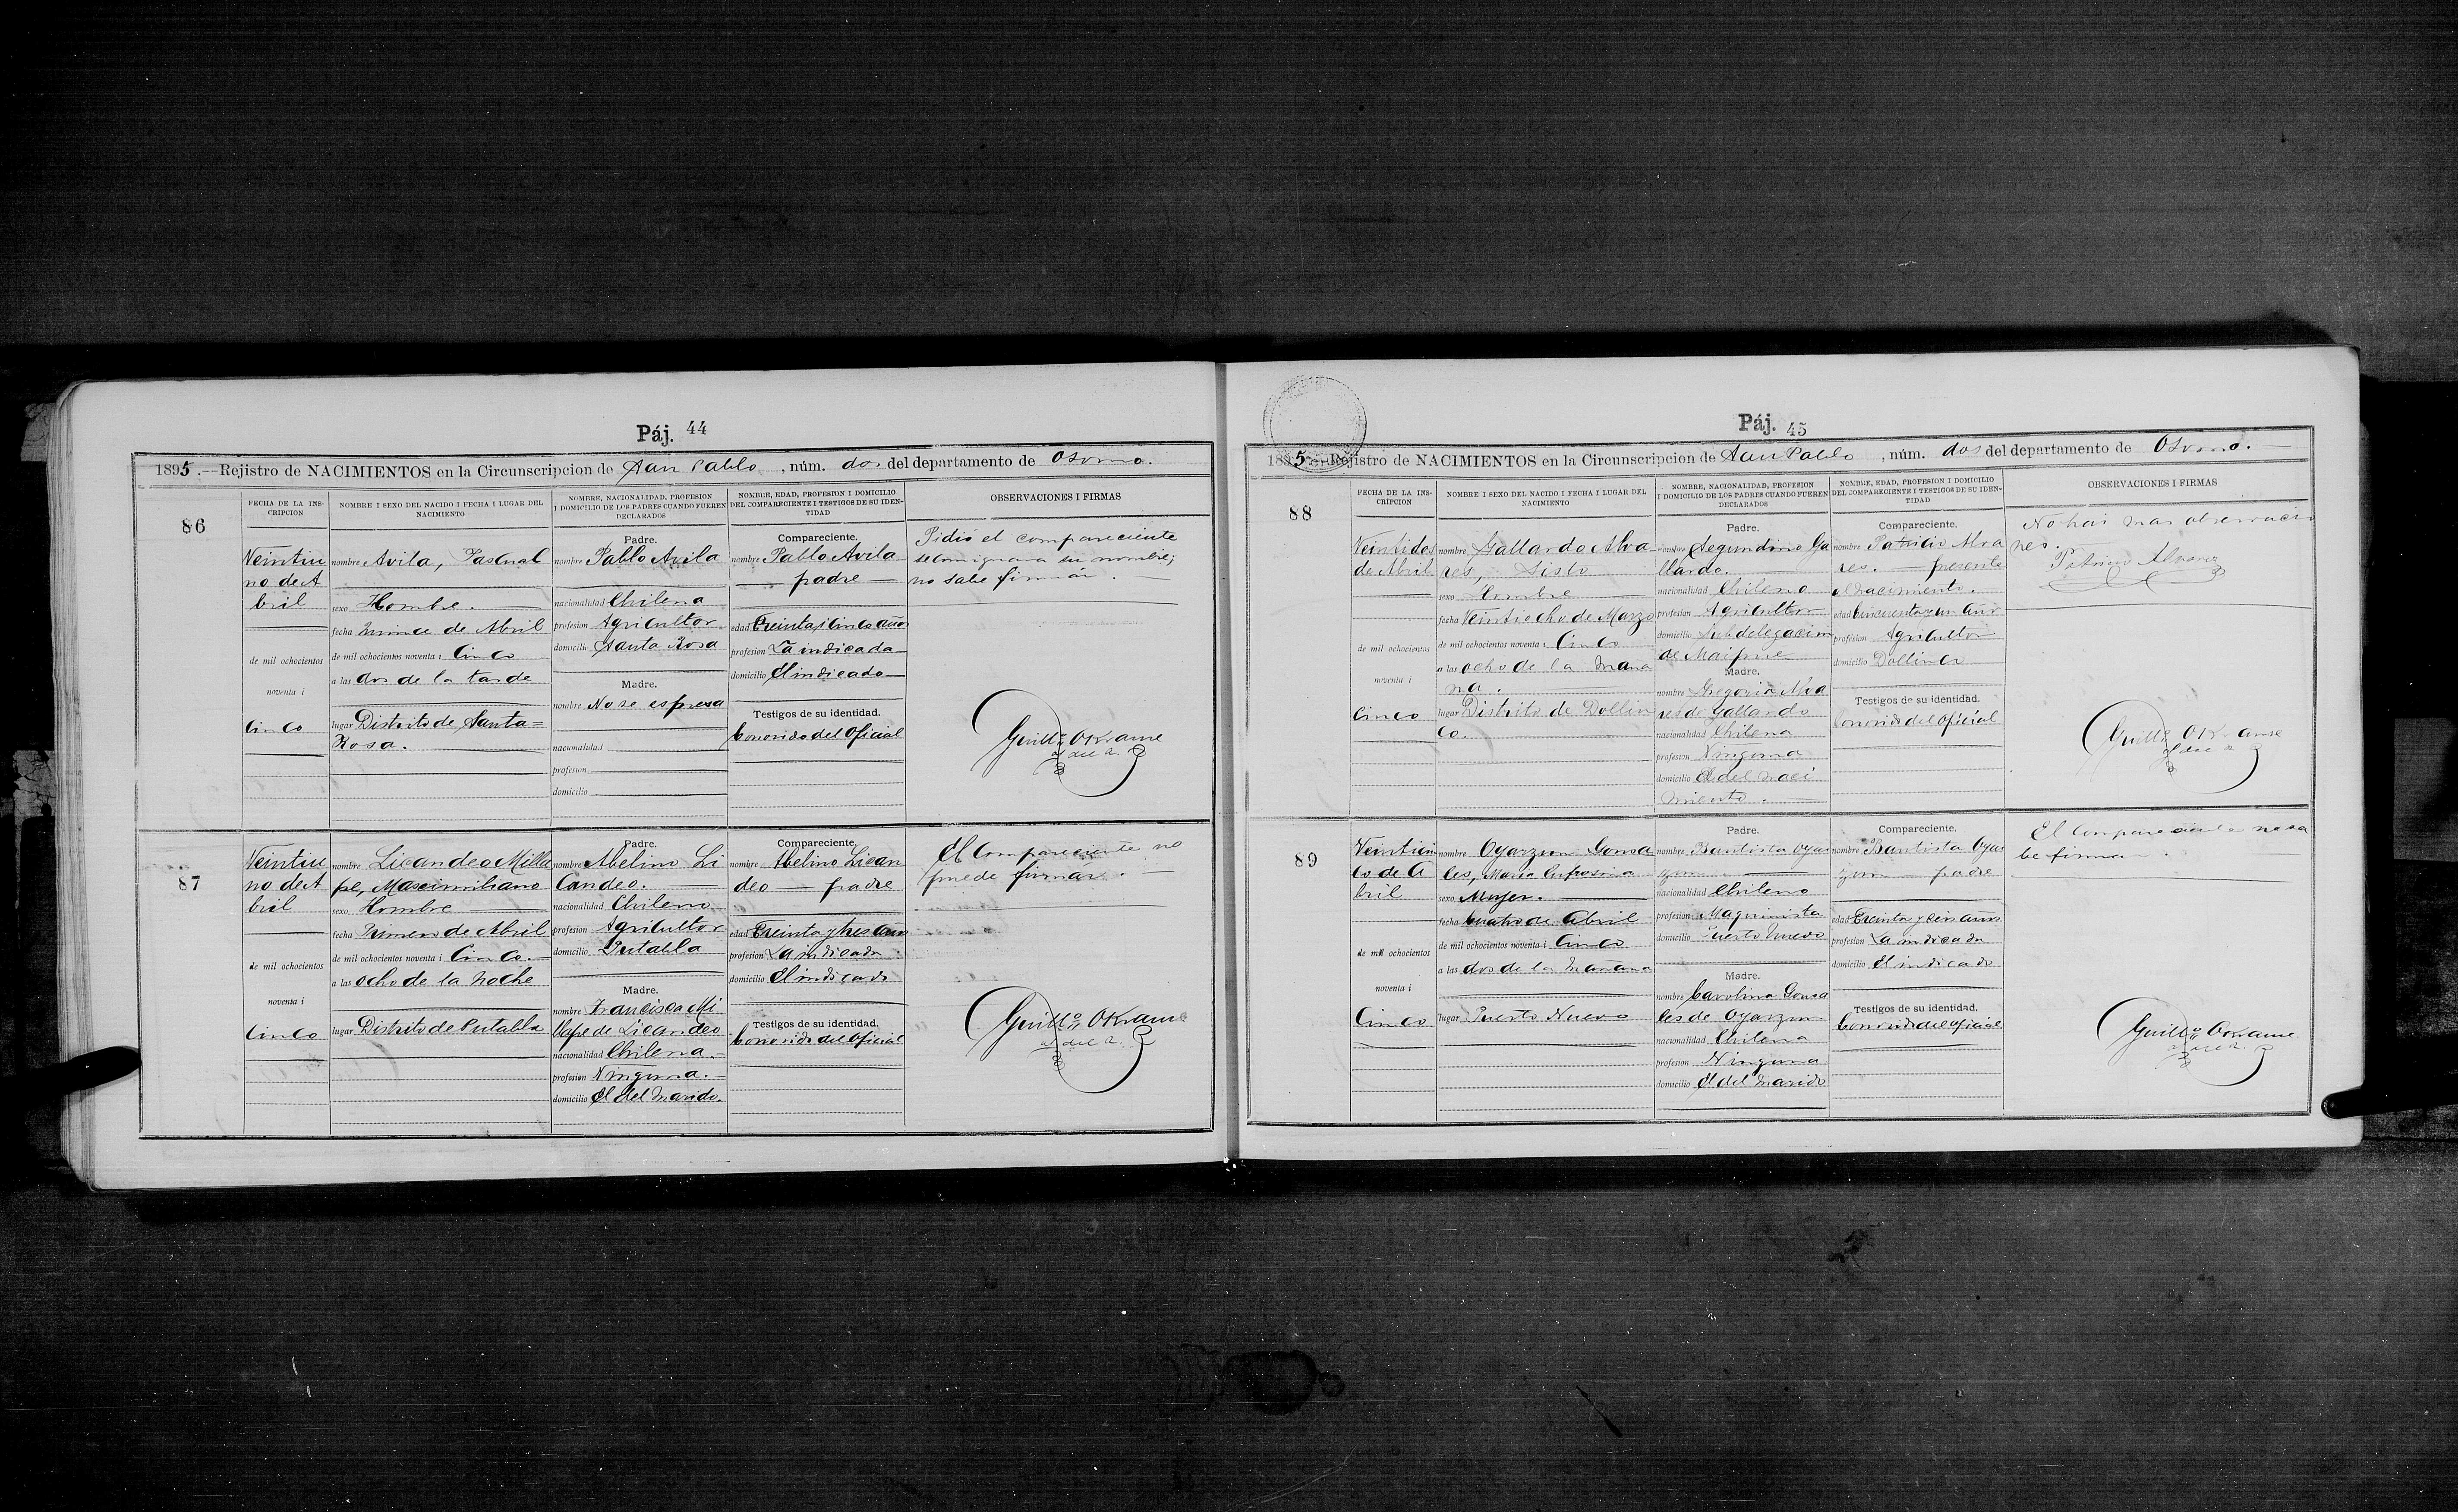 Páj. 44
1895.—Rejistro de NACIMIENTOS en la Circunscripcion de San Pablo, núm. dos del departamento de Osorno.
FECHA DE LA INS-
CRIPCION
NOMBRE I SEXO DEL NACIDO I FECHA I LUGAR DEL
NACIMIENTO
NOMBRE, NACIONALIDAD, PROFESION
I DOMICILIO DE LOS PADRES CUANDO FUEREN
DECLARADOS
NOMBRE, EDAD, PROFESION I DOMICILIO
DEL COMPARECIENTE I TESTIGOS DE SU IDEN-
TIDAD
OBSERVACIONES I FIRMAS
86
Veintiu
no de A
bril
de mil ochocientos
noventa i
Cinco
nombre Avila, Pascual
sexo Hombre.
fecha Quince de Abril
de mil ochocientos noventa i Cinco
a las dos de la tarde
lugar Distrito de Santa=
Rosa.
Padre.
nombre Pablo Avila
nacionalidad Chilena
profesion Agricultor
domicilio Santa Rosa
Madre.
nombre No se espresa
nacionalidad
profesion
domicilio
Compareciente.
nombre Pablo Avila
— padre —
edad Treinta i cinco años
profesion La indicada
domicilio El indicado
Testigos de su identidad.
Conocido del Oficial
Pidió el compareciente
se consignara su nombre;
no sabe firmar.
Guillo. O Krause
of. del 2.
87
Veintiu
no de A
bril
de mil ochocientos
noventa i
Cinco
nombre Licandeo Milla
pe, Mascimiliano
sexo Hombre
fecha Primero de Abril
de mil ochocientos noventa i Cinco.
a las ocho de la noche
lugar Distrito de Putabla
Padre.
nombre Abelino Li
candeo.
nacionalidad Chileno
profesion Agricultor
domicilio Putabla
Madre.
nombre Francisca Mi
llape de Licandeo
nacionalidad Chilena.
profesion Ninguna.
domicilio El del marido.
Compareciente.
nombre Abelino Lican
deo — padre
edad Treinta y tres años
profesion La indicada
domicilio El indicado
Testigos de su identidad.
Conocido del Oficial
El Compareciente no
puede firmar.
Guillo. O Krause
of. del 2.
Páj. 45
1895.—Rejistro de NACIMIENTOS en la Circunscripcion de San Pablo, núm. dos del departamento de Osorno.
FECHA DE LA INS-
CRIPCION
NOMBRE I SEXO DEL NACIDO I FECHA I LUGAR DEL
NACIMIENTO
NOMBRE, NACIONALIDAD, PROFESION
I DOMICILIO DE LOS PADRES CUANDO FUEREN
DECLARADOS
NOMBRE, EDAD, PROFESION I DOMICILIO
DEL COMPARECIENTE I TESTIGOS DE SU IDEN-
TIDAD
OBSERVACIONES I FIRMAS
88
Veintidos
de Abril
de mil ochocientos
noventa i
Cinco
nombre Gallardo Alva
res, Sisto
sexo Hombre
fecha Veintiocho de Marzo
de mil ochocientos noventa i Cinco
a las ocho de la maña
na.
lugar Distrito de Dollin
co.
Padre.
nombre Segundino Ga
llardo.
nacionalidad Chileno
profesion Agricultor
domicilio Subdelegacion
de Maipue
Madre.
nombre Gregoria Alva
res de Gallardo
nacionalidad Chilena
profesion Ninguna
domicilio El del naci
miento.
Compareciente.
nombre Patricio Alva
res. — presente
al nacimiento.
edad Cincuenta y un años
profesion Agricultor
domicilio Dollinco
Testigos de su identidad.
Conocido del Oficial
No hai mas observacio
nes.
Patricio Alvarez
Guillo. O Krause
of. del 2
89
Veinticin
co de A
bril
de mil ochocientos
noventa i
Cinco
nombre Oyarzun Gonsa
les, María
sexo Mujer.
fecha Cuatro de Abril
de mil ochocientos noventa i Cinco
a las dos de la mañana
lugar Puerto Nuevo
Padre.
nombre Bautista Oyar
zun
nacionalidad Chileno
profesion Maquinista
domicilio Puerto Nuevo
Madre.
nombre Carolina Gonsa
les de Oyarzun
nacionalidad Chilena
profesion Ninguna
domicilio El del marido
Compareciente.
nombre Bautista Oyar
zun padre
edad Treinta y seis años
profesion La indicada
domicilio El indicado
Testigos de su identidad.
Conocido del Oficial
El Compareciente no sa
be firmar.
Guillo. O Krause
of. del 2.